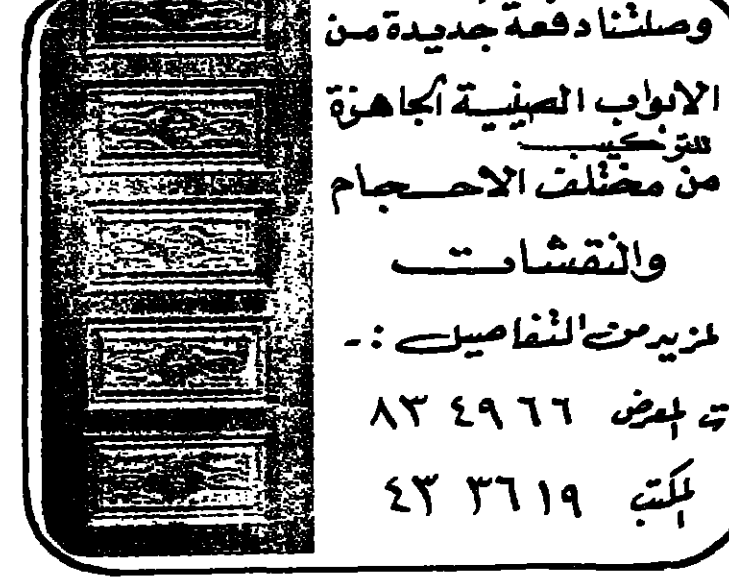 وصلتنا دفعة جديدة من
الابواب الصينية الجاهزة
للتركيب
من مختلف الاحجام
والنقشات
لمزيد من التفاصيل :-
ت المعرض ٨٣ ٤٩ ٦٦
المكتب ٤٣ ٣٦ ١٩